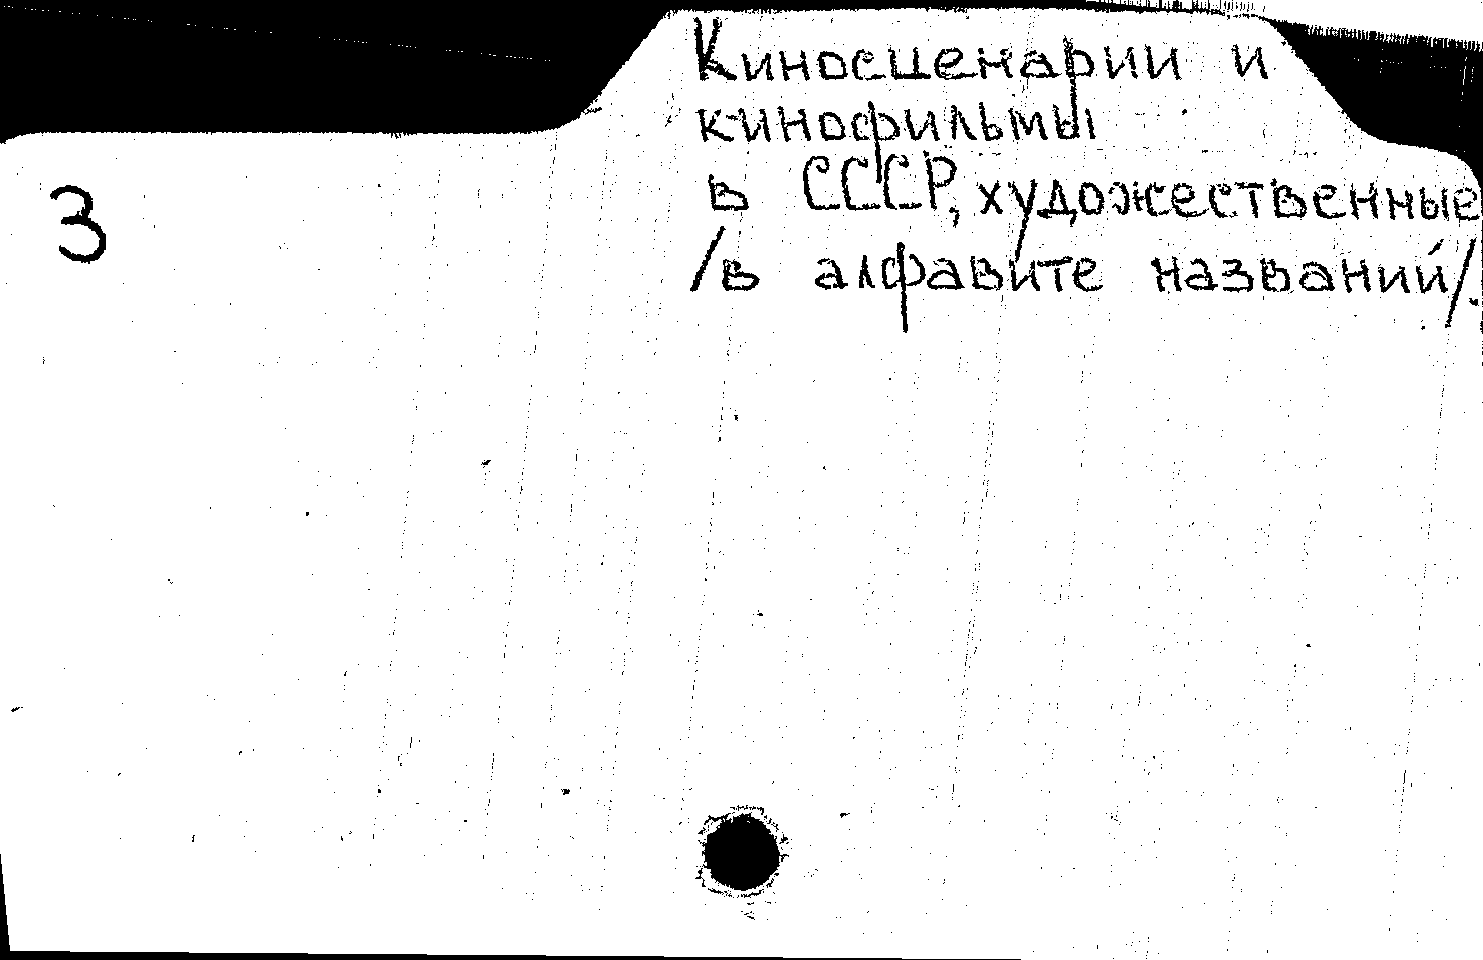 Киносценарии и
кинофильмы
в СССР, художественные
/в алфавите названий/.
3